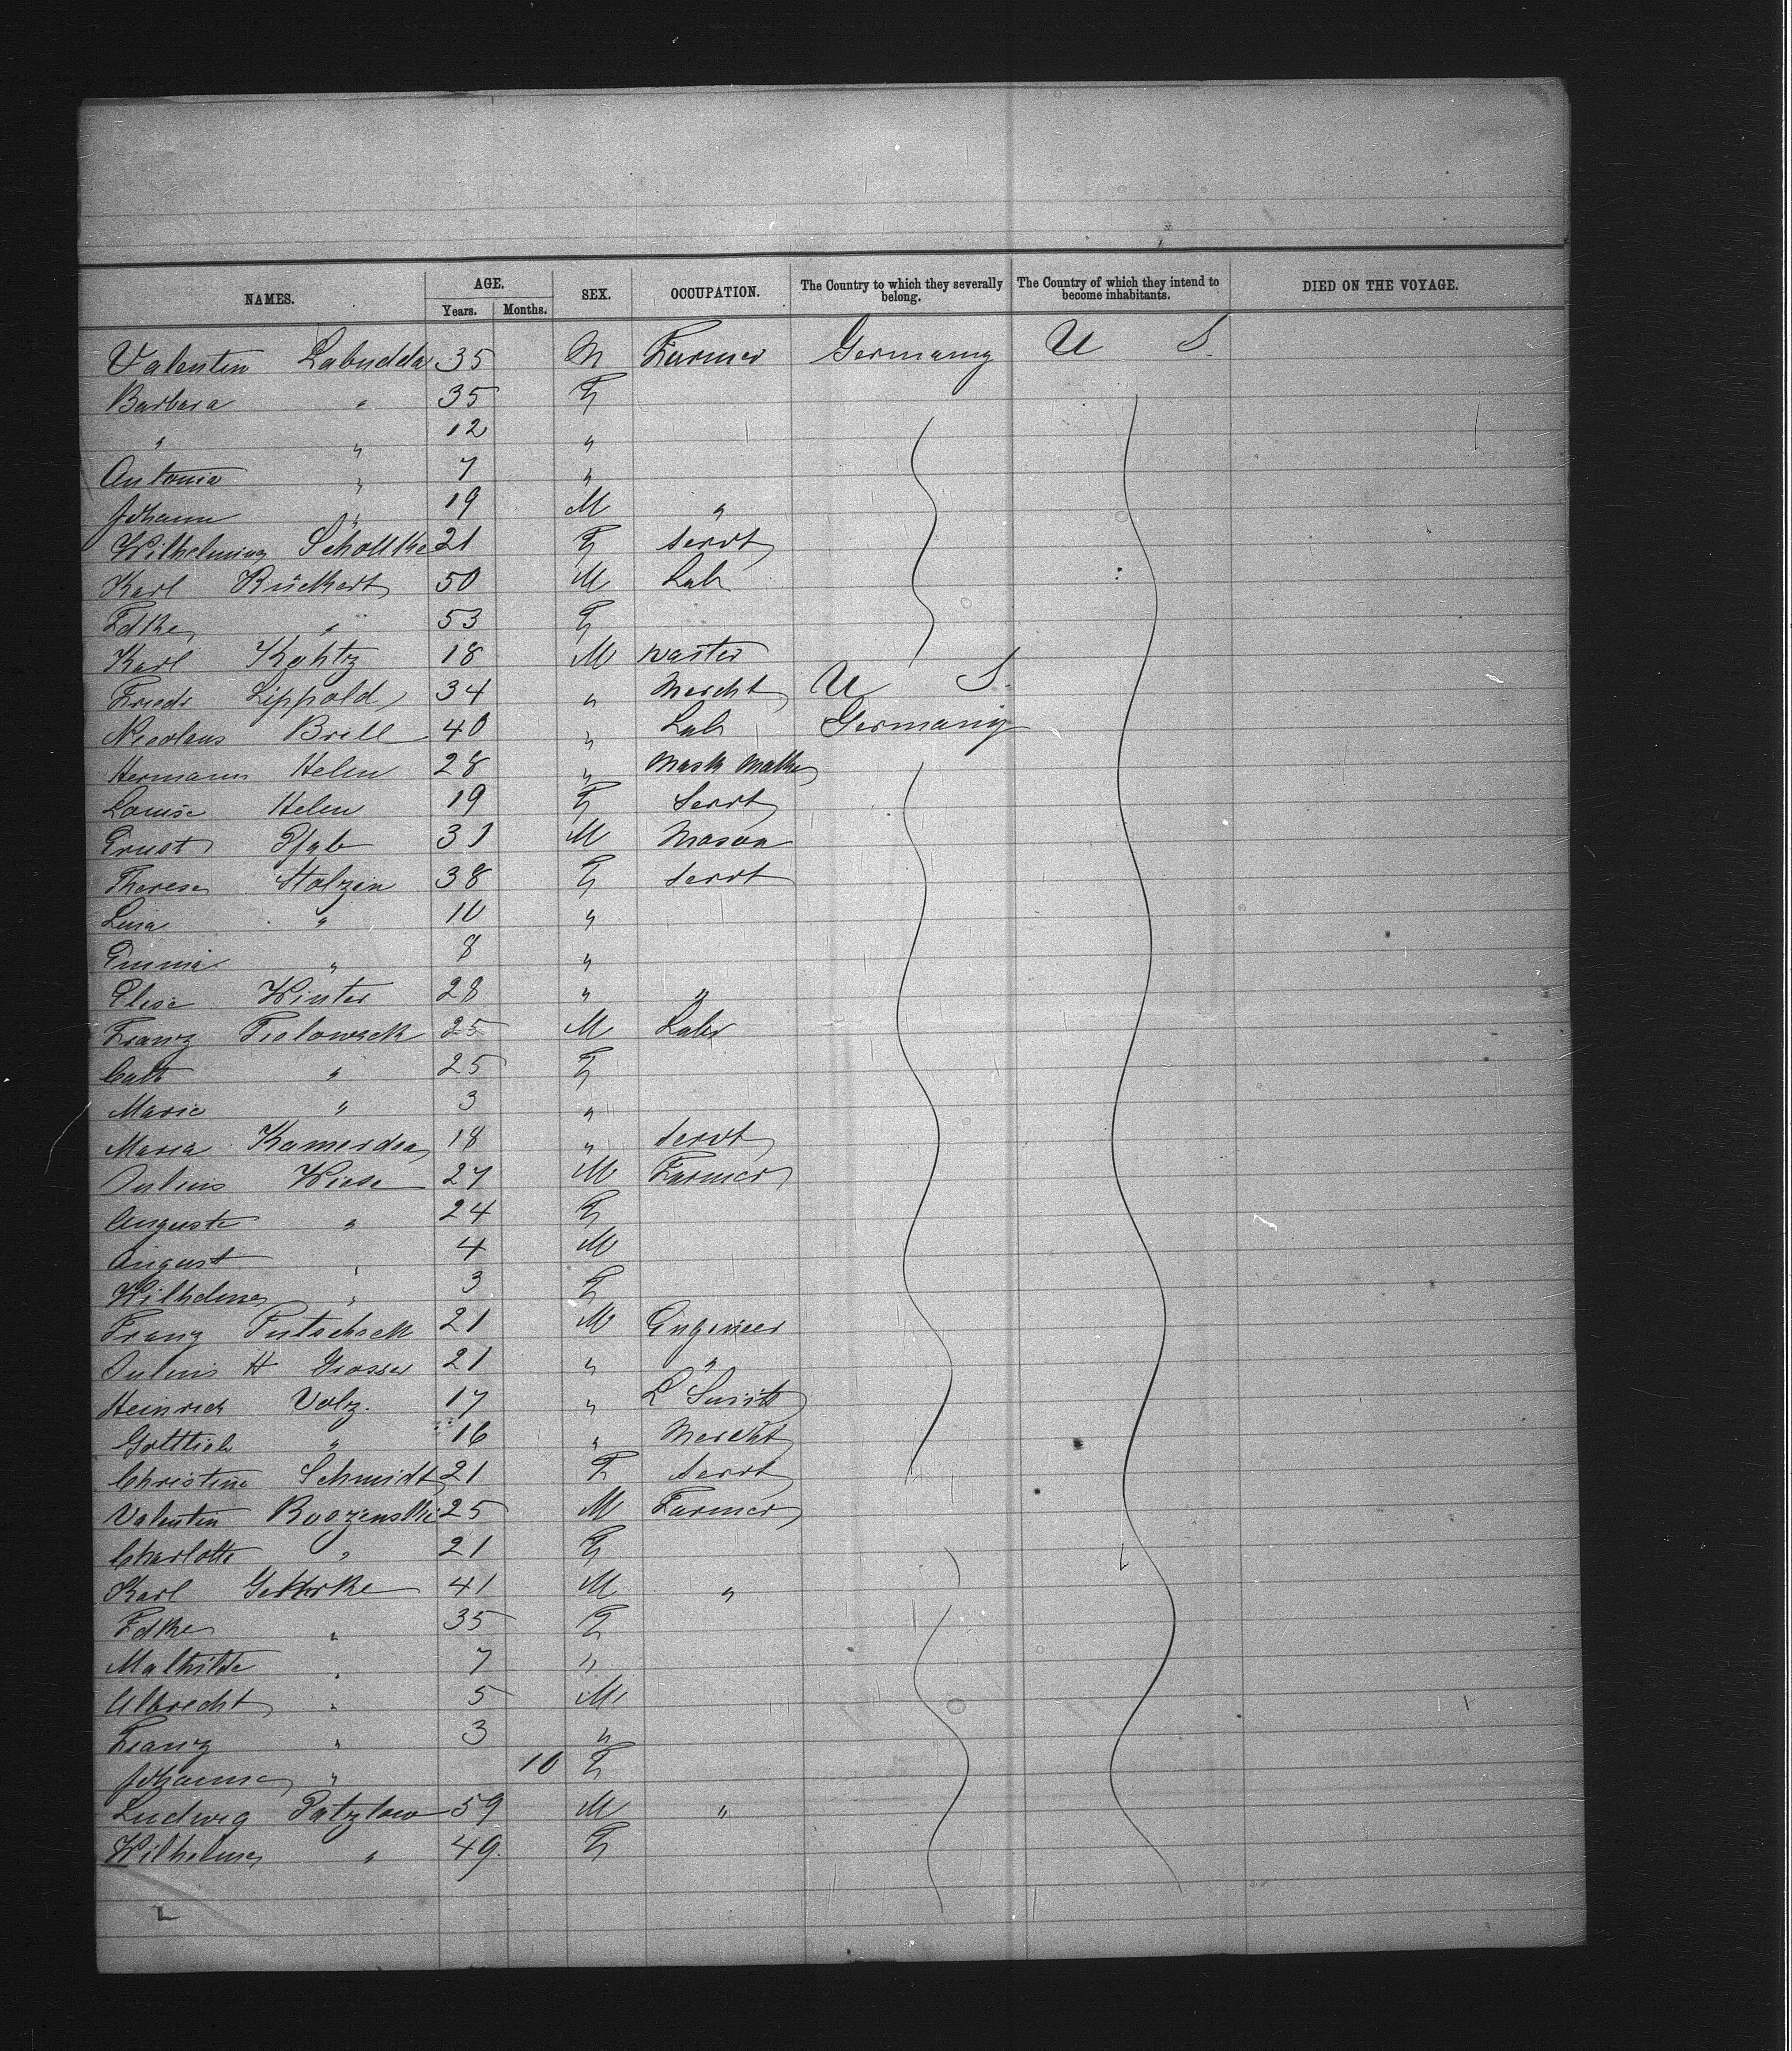 NAMES. AGE. Years. Months. SEX. OCCUPATION. The Country to which they severally belong. The Country of which they intend to become inhabitants. DIED ON THE VOYAGE.
Valentin Labudda 35 M Farmer Germany U S.
Barbara " 35 F
" " 12 "
Antonia " 7 "
Johann " 19 M "
Wilhelmina Schollke 21 F Servt
Karl Rückert 50 M Lab
Fdke " 53 F
Karl Kohtz 18 M waiter
Friedr Lippold 34 " Mercht U S.
Nicolaus Brill 40 " Lab Germany
Hermann Helen 28 "
Louise Helen 19 F Servt
Ernst Pfab 31 M Mason
Therese Stolzin 38 F Servt
Lina " 10 "
Emma " 8 "
Elise Winter 28 " "
Franz 25 M Labr
Cath " 25 F
Marie " 3 "
Maria 18 " Servt
Julius Wiese 27 M Farmer
Auguste " 24 F
August " 4 M
Wilhelme " 3 F
Franz 21 M Engineer
Julius H Grosser 21 " "
Heinrich Volz. 17 " L Smith
Gottlieb " 16 " Mercht
Christine Schmidt 21 F Servt
Valentin 25 M Farmer
Charlotte " 21 F
Karl 41 M "
Fdke " 35 F
Mathilde " 7 "
Albrecht " 5 M
Franz " 3 "
Johanna " 10 F
Ludwig Patzlow 59 M "
Wilhelme " 49. F